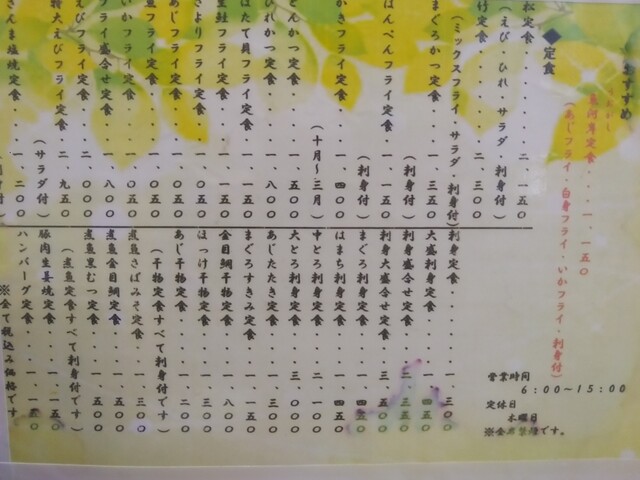 おすすめ
魚河岸定食・・・一、一五〇
(あじフライ・白身フライ・いかフライ・刺身付)
◆定食
松定食・・・・・・二、一五〇
(えび・ひれ・サラダ・刺身付)
竹定食・・・・・・二、三〇〇
(ミックスフライ・サラダ・刺身付)
まぐろかつ定食・・・一、三五〇
(刺身付)
はんぺんフライ定食・・一、一五〇
(刺身付)
かきフライ定食・・・一、四〇〇
(十月〜三月)
とんかつ定食・・・・一、五〇〇
ひれかつ定食・・・・一、八〇〇
ほたて貝フライ定食・・一、一五〇
生鮭フライ定食・・・一、一五〇
さよりフライ定食・・・一、〇五〇
あじフライ定食・・・一、〇五〇
フライ定食・・・一、一五〇
いかフライ定食・・・一、〇五〇
フライ盛合せ定食・・一、八〇〇
えびフライ定食・・・二、〇〇〇
特大えびフライ定食・・二、九五〇
(サラダ付)
さんま塩焼定食・・・一、二〇〇
刺身定食・・・・・・一、三〇〇
大盛刺身定食・・・・一、四五〇
刺身盛合せ定食・・・二、三五〇
刺身大盛合せ定食・・三、五〇〇
まぐろ刺身定食・・・一、四五〇
はまち刺身定食・・・一、四五〇
中とろ刺身定食・・・二、一〇〇
大とろ刺身定食・・・三、〇〇〇
あじたたき定食・・・一、五〇〇
まぐろすきみ定食・・一、一五〇
金目鯛干物定食・・・一、八〇〇
ほっけ干物定食・・・一、三〇〇
あじ干物定食・・・・一、二〇〇
(干物定食すべて刺身付です)
煮魚さばみそ定食・・一、三〇〇
煮魚金目鯛定食・・・一、六〇〇
煮魚黒むつ定食・・・一、五〇〇
(煮魚定食すべて刺身付です)
豚肉生姜焼定食・・・一、一五〇
ハンバーグ定食・・・一、一五〇
※全て税込み価格です
営業時間
6:00〜15:00
定休日
木曜日
※全席禁煙です。